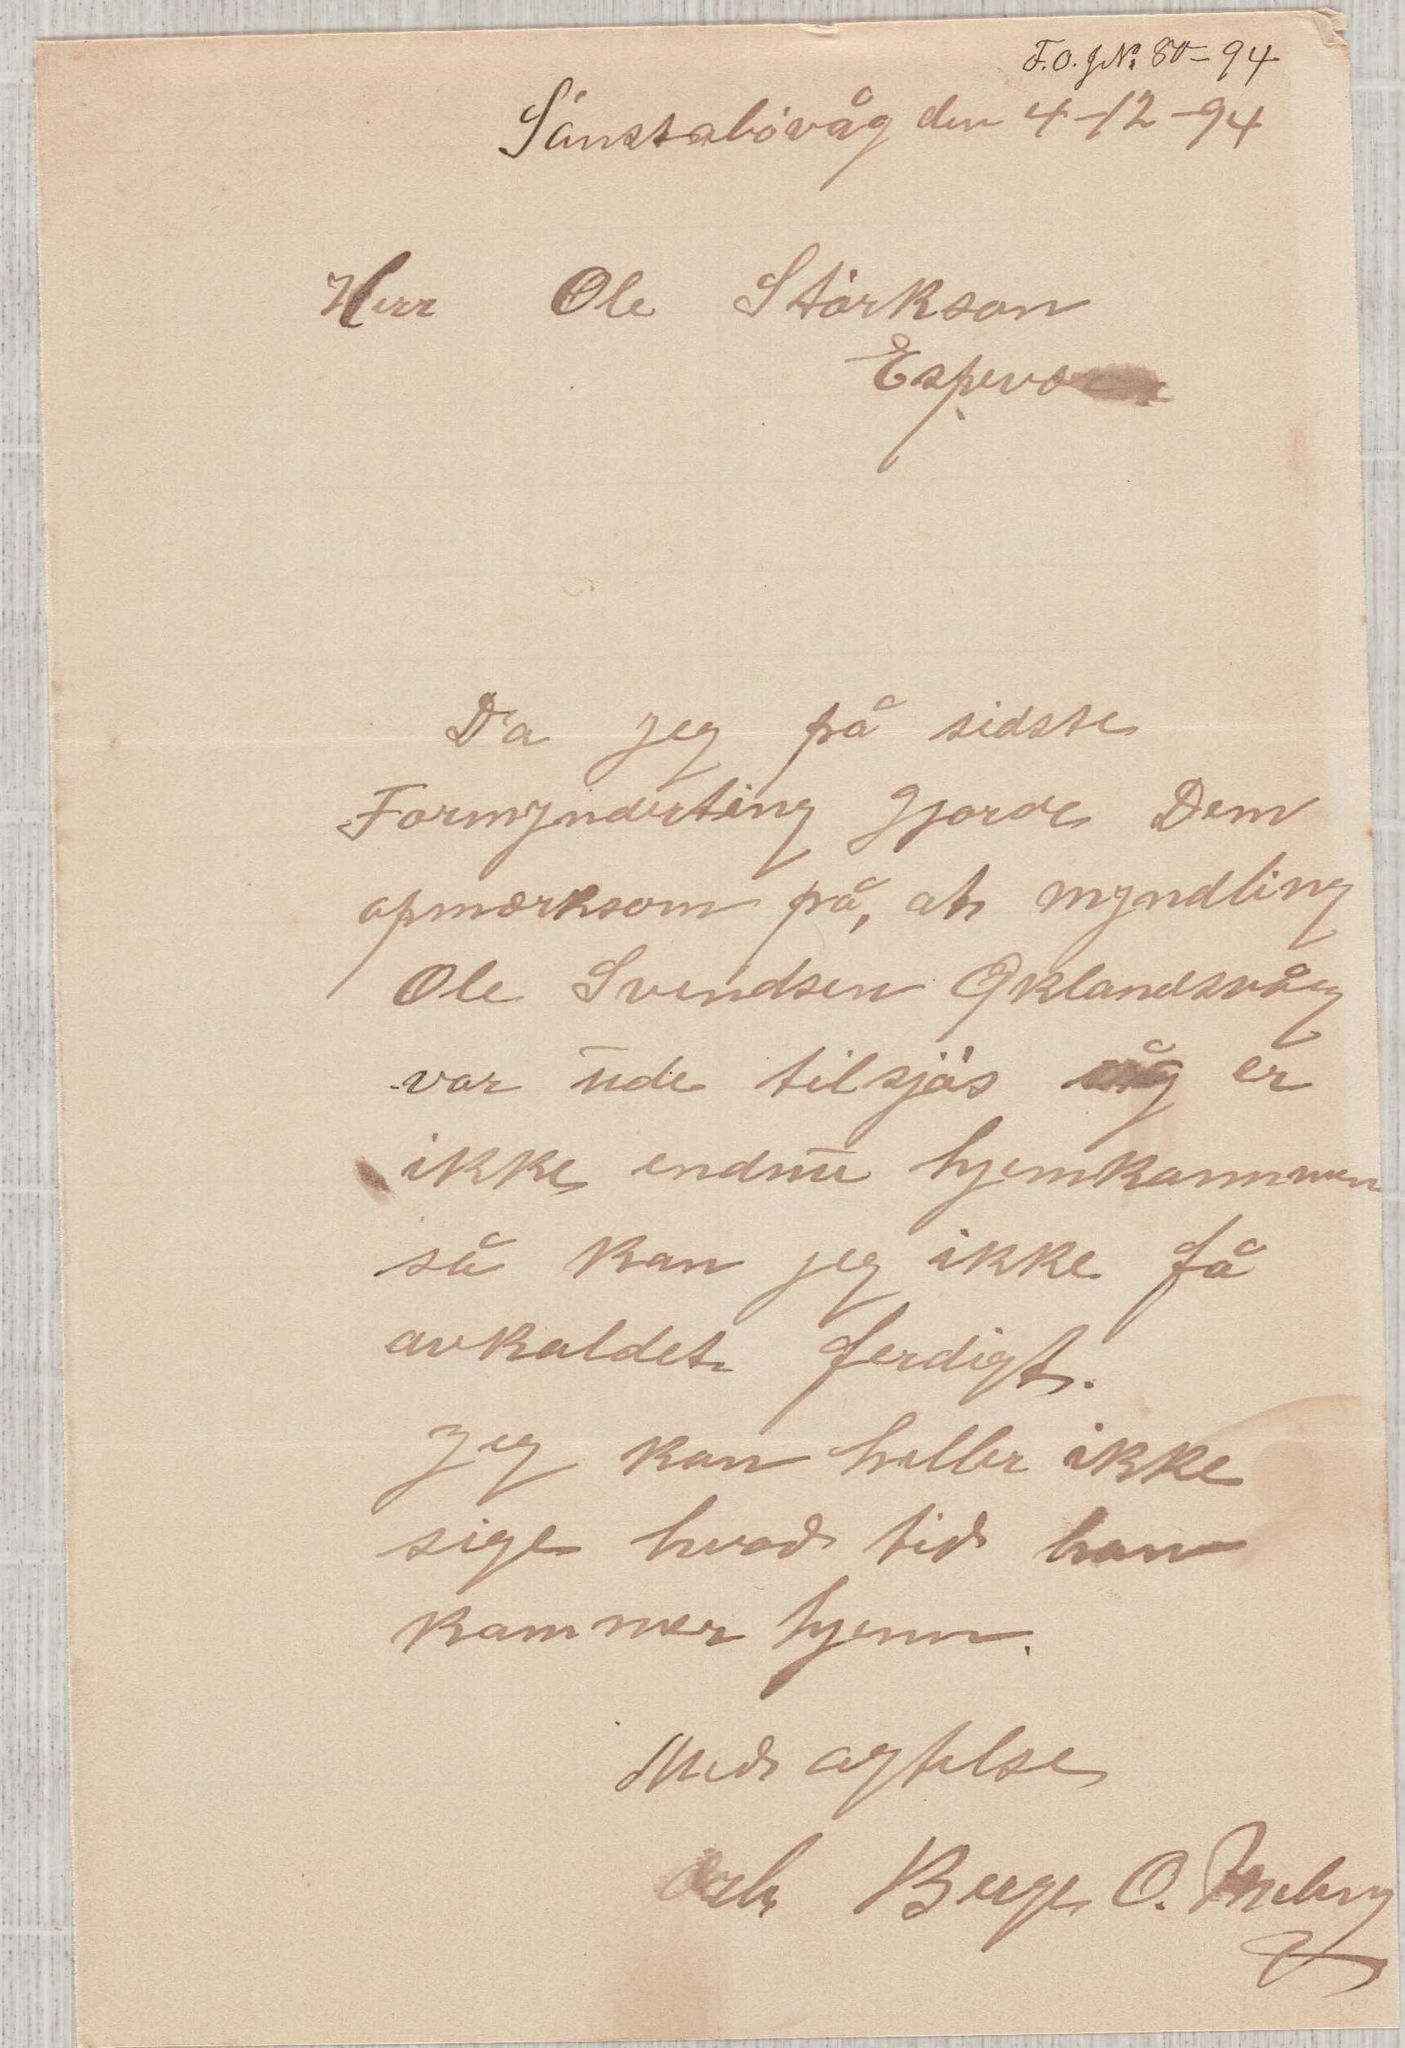 F.O. JNo 80-94
Sönstabövåg den 4-12-94
Herr Ole Störkson
Espevær
Da jeg på sidste
Formynderting gjorde Dem
opmerksom på, at myndling
Ole Svendsen Øklandsvåg
var ude tilsjös og er
ikke endnu hjemkommen
så kan jeg ikke få
avkaldet ferdigt.
Jeg kan heller ikke
sige hvad tid han
kommer hjem.
Med agtelse
Berge O.